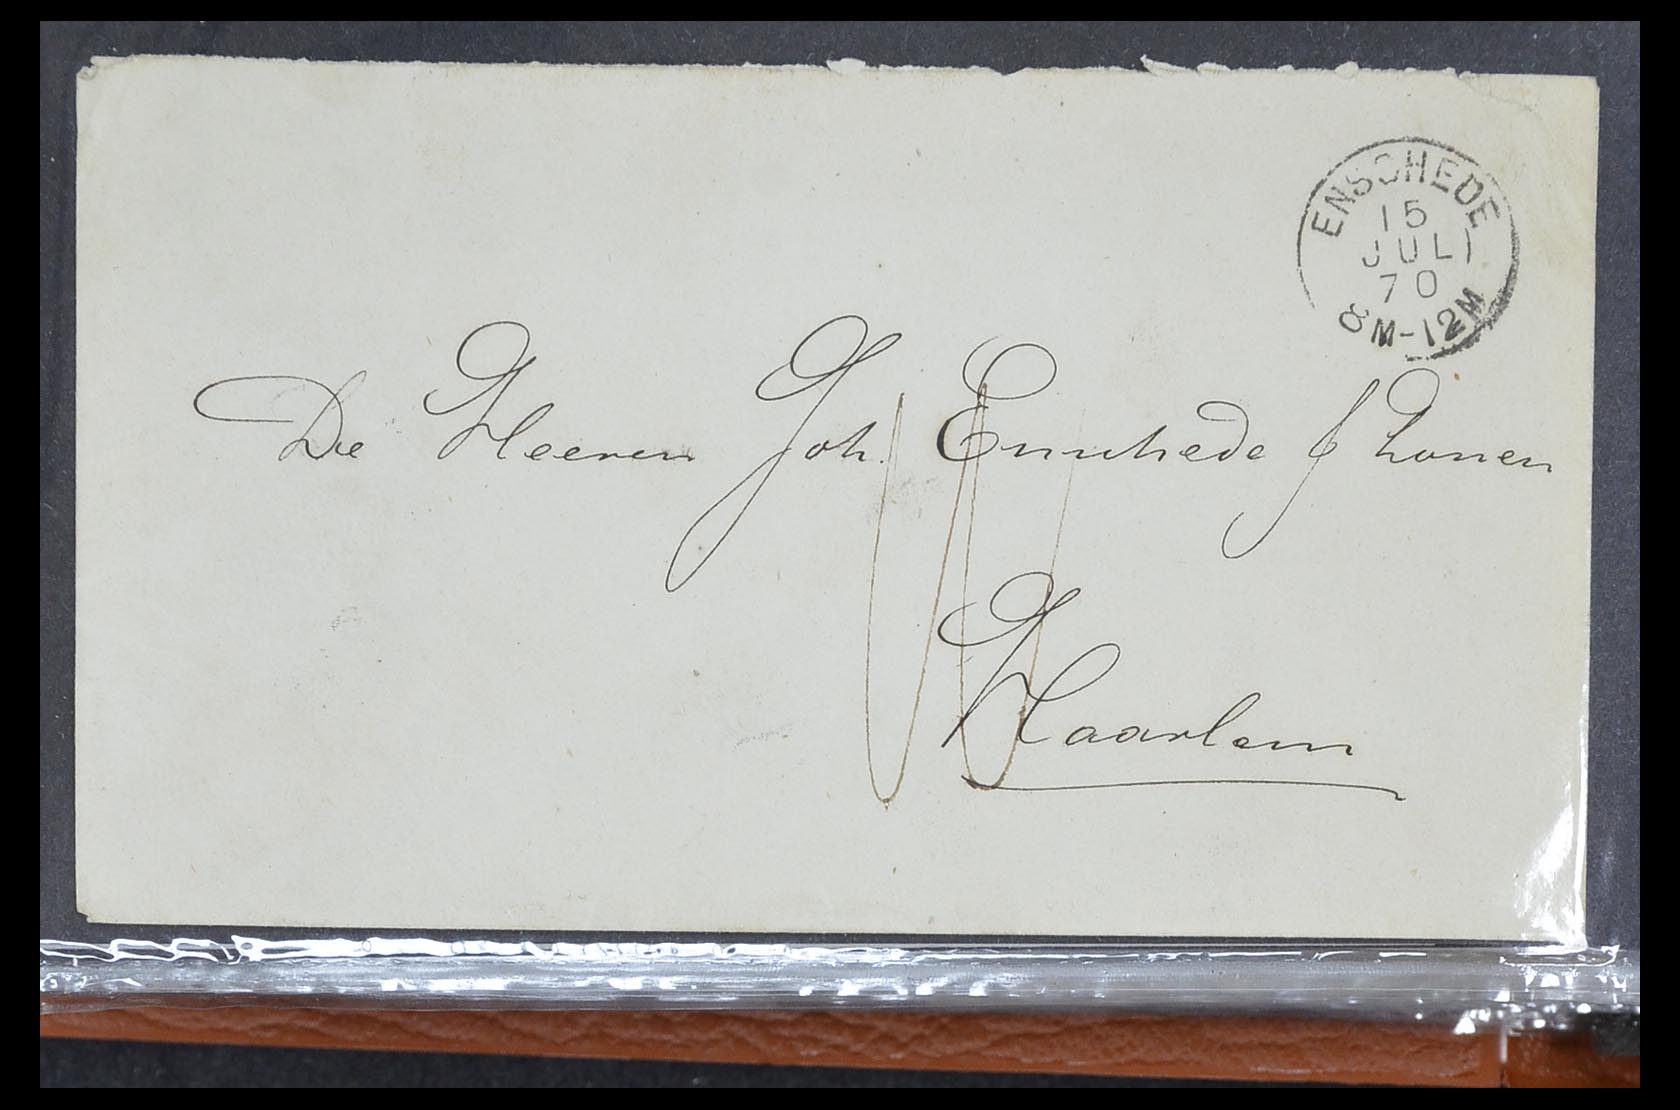 ENSCHEDE
15
JULI
70
8M-12M
De Heeren Joh. Enschede & Zonen
Haarlem